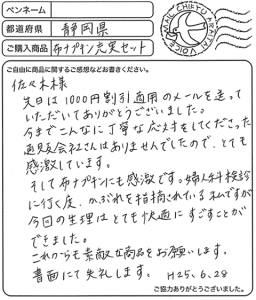 ペンネーム
都道府県 静岡県
ご購入商品 布ナプキン充実セット
MAIL CHIKYU ARATAI VOICE
ご自由に商品に関するご感想などお書きください。
佐々木様
先日は1000円割引適用のメールを送って
いただいてありがとうございました。
今までこんなに丁寧な応対をしてくださった
通販会社さんはありませんでしたので、とても
感激しています。
そして布ナプキンにも感激です。婦人科検診
に行く度、かぶれを指摘されている私ですが
今回の生理はとても快適にすごすことが
できました。
これからも素敵な商品をお願いします。
書面にて失礼します。 H25.6.28
ご協力ありがとうございました。